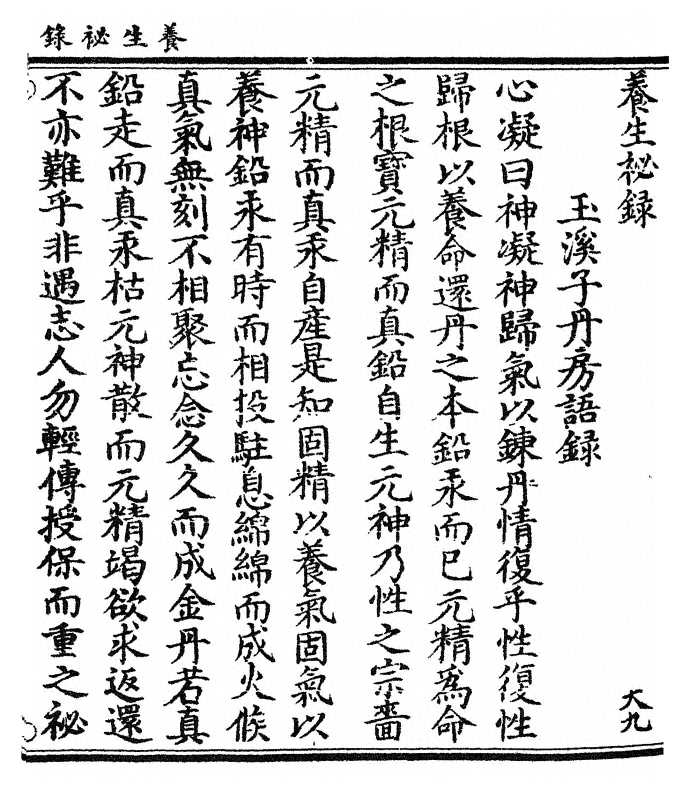 養生祕錄
養生祕録
玉溪子丹房語録
心凝曰神凝神歸氣以鍊丹情復乎性復性
歸根以養命還丹之本鉛汞而已元精爲命
之根寳元精而真鉛自生元神乃性之宗嗇
元精而真汞自產是知固精以養氣固氣以
養神鉛汞有時而相投駐息綿綿而成火候
真氣無刻不相聚忘念久久而成金丹若真
鉛走而真汞枯元神散而元精竭欲求返還
不亦難乎非遇志人勿輕傳授保而重之祕
大九